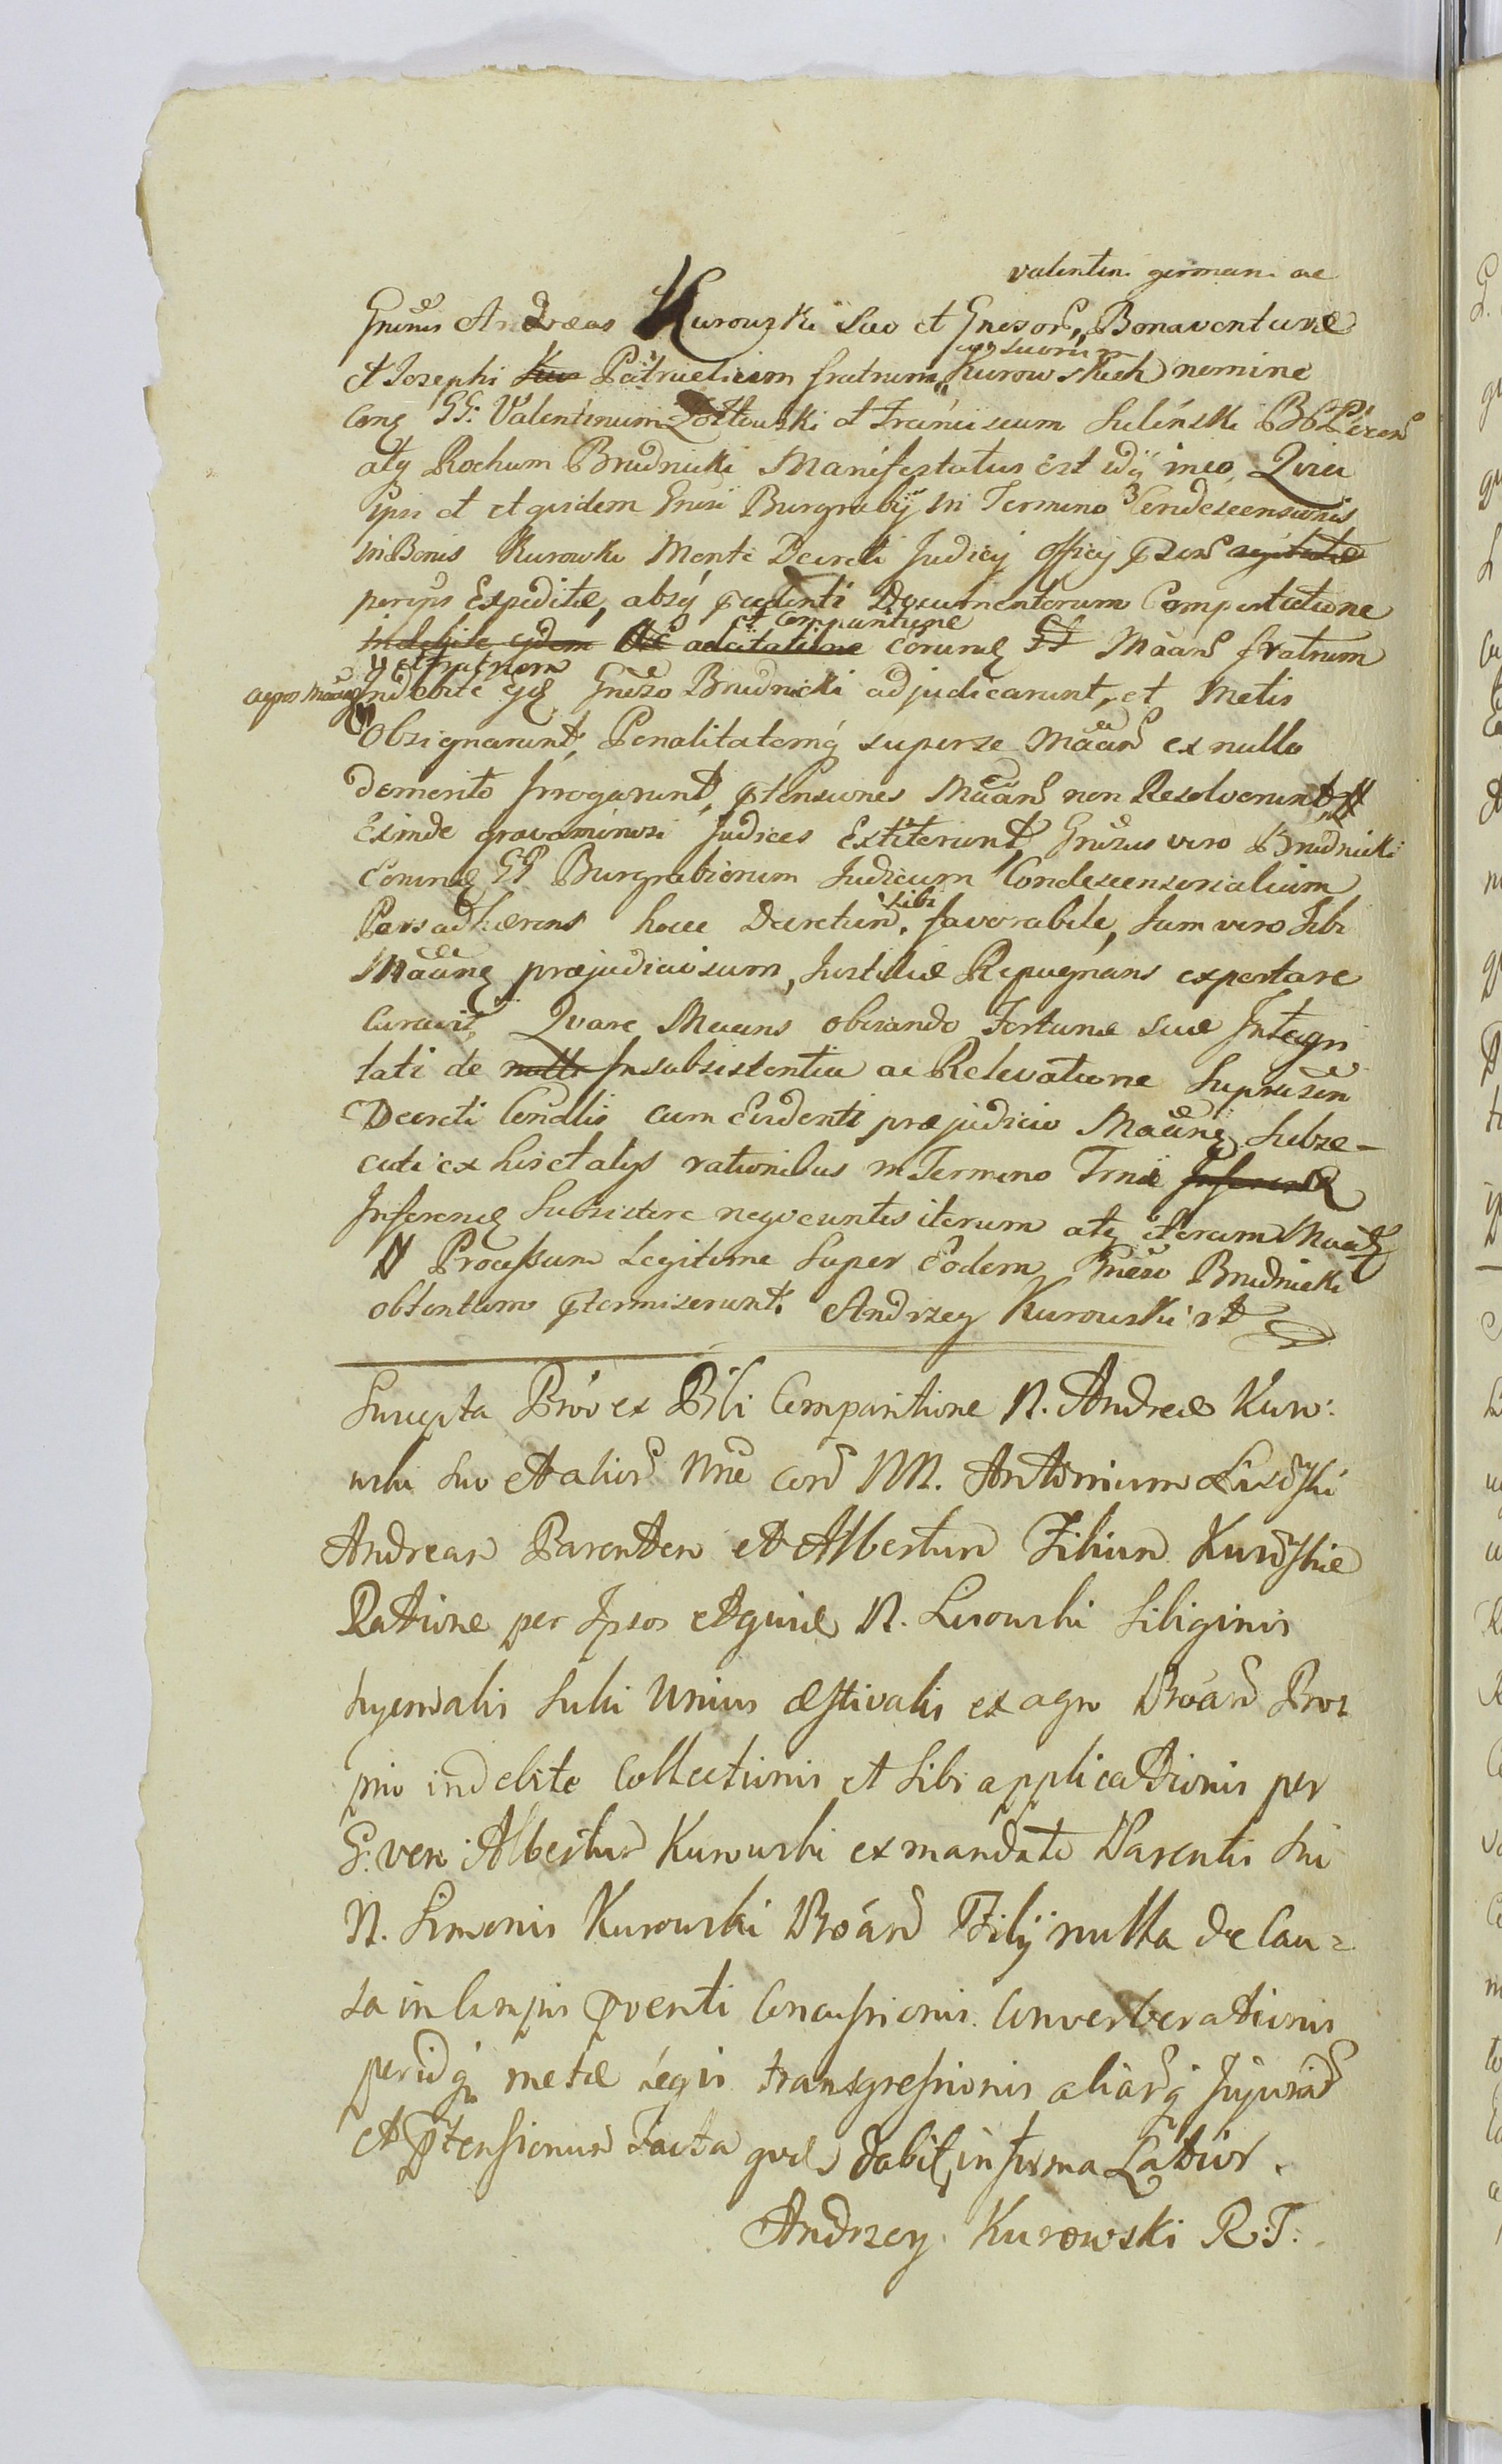 valentini germani ac
Gnrsus Andreas Kurowski suo et Gnrsorum Bonaventuræ
et Josephi Patruelium fratrum suorum Kurowskich nomine
Cong GG: Valentinum Zołtowski et Franciscum Suliński
atq Rochum Brudnicki Manifestatus est idq in eo, Quia
ipsi et et quidem Gnrsi Burgrabÿ in Termino Condescensionis
in Bonis Kurowko Mente Decreti Judicÿ Officÿ
per ipsos Expeditæ, absq Documentorum Comportatione
indebite ejdem adcitatione et Comparitione eorumq Maan fratrum
agros Indebite Gnrso Brudnicki adjudicarunt, et Metis
Obsignarunt, Penalitatemq superse Maan ex nullo
demerito Irrogarunt, ptensiones Maan non Resolverunt
Exinde gravaminosi Judices Extiterunt, Gnrsus vero Brudnicki
Eorumq GG Burgrabiorum Judicum Condescensorialium
Pars adhærens hocce Decretum sibi favorabile, tum vero sibi
Maang præjudiciosum, Justitiæ Repugnans exportare
Curavit, Quare Maans obviando Fortunæ suæ Integri
tati de nulla Insubsistentia ac Relevatione Suprascrn
Decreti Condlis cum Evidenti præjudicio Maang Subse-
cuti ex his et alÿs rationibus in Termino Trnii Inferend
Inferend Subsistere negvcuntes iterum atq iterum Maand
Processum Legitime Super Eodem Gnrso Brudnicki
obtentum ptermiserunt. Andrzey Kurowski rt
Suscepta Prov ex Pbli Comparitione N. Andreæ Kuro:
wski suo et alior Nne con NN. Antonium Lisowski
Andream Parentem et Albertum Filium Kurowskie
Ratione per Ipsos etquid N. Lisowski Siliginis
hyemalis Sulci Unius æstivalis ex agro Proan Pro
prio indebite Collectionis et Sibi applicationis per
G. vero Albertum Kurowski ex mandato Parentis sui
N. Simonis Kurowski Proan Filÿ nulla de Cau=
sa in Campis pventi Concussionis. Converberationis
peridq metæ Legis transgressionis aliarq Injuriar
et ptensionum Facta qvæ dabit, in forma Latior.
Andrzey Kurowski R.T.